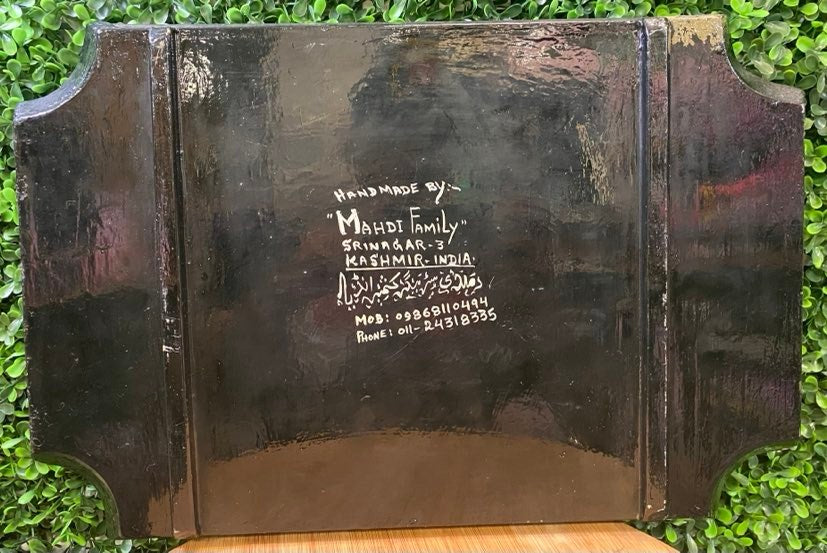 HANDMADE BY:-
"MAHDI FAMILY"
SRINAGAR-3
KASHMIR-INDIA.
کشمیر انڈیا
MOB: 09868110494
PHONE: 011-24318335